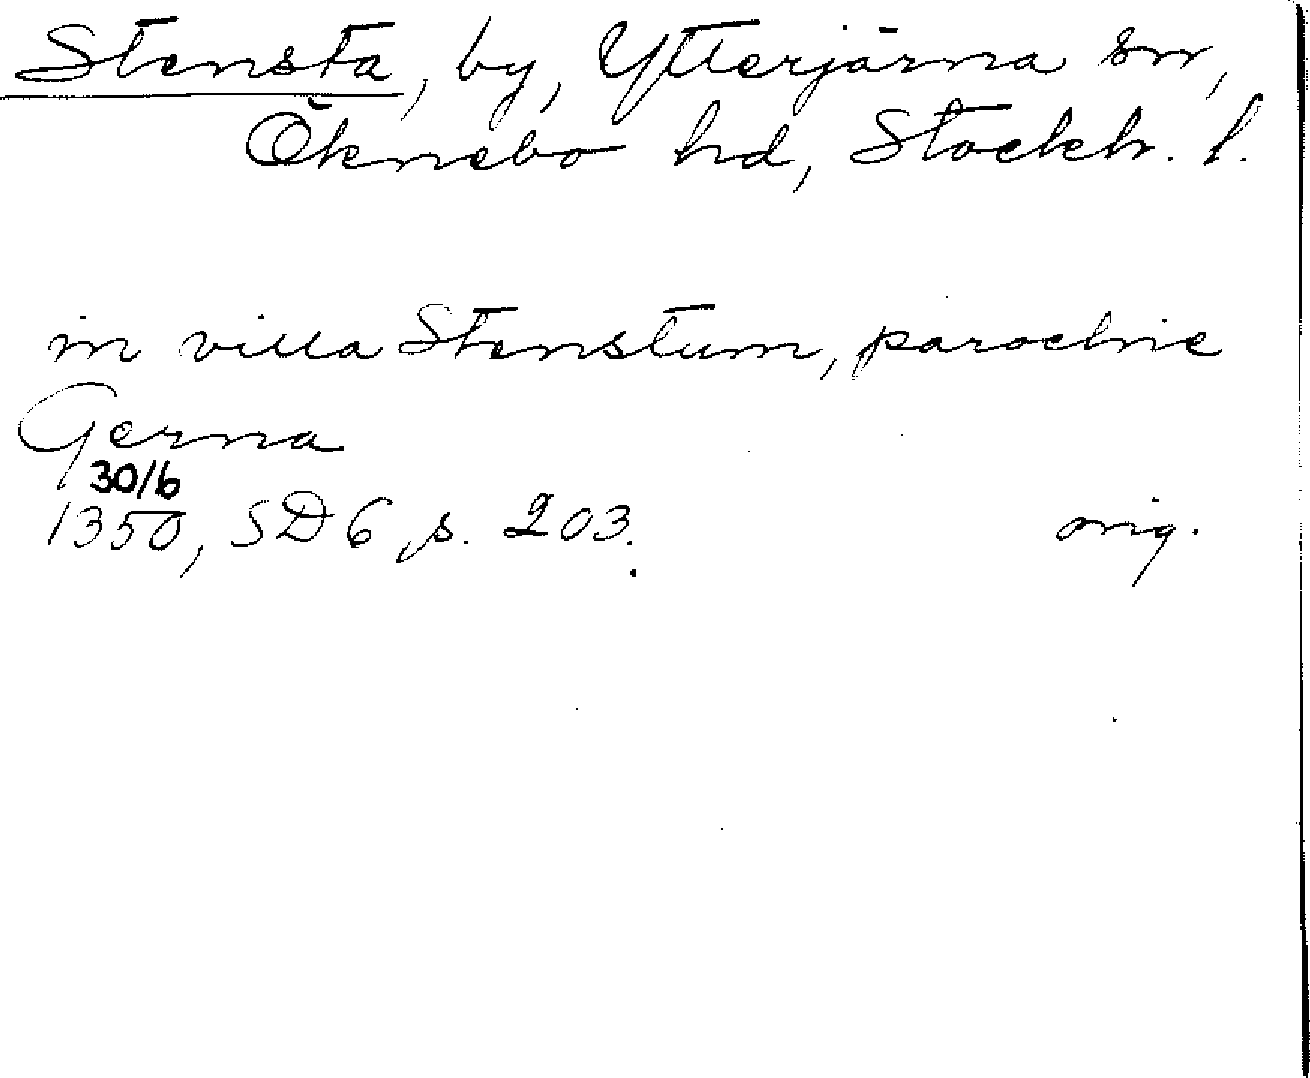 Stensta, by, Ytterjärna sn,
Öknebo hd, Stockh. l.
in villa Stenstum, parochie
Gerna
30/6
1350, SD 6, s. 203.
orig.